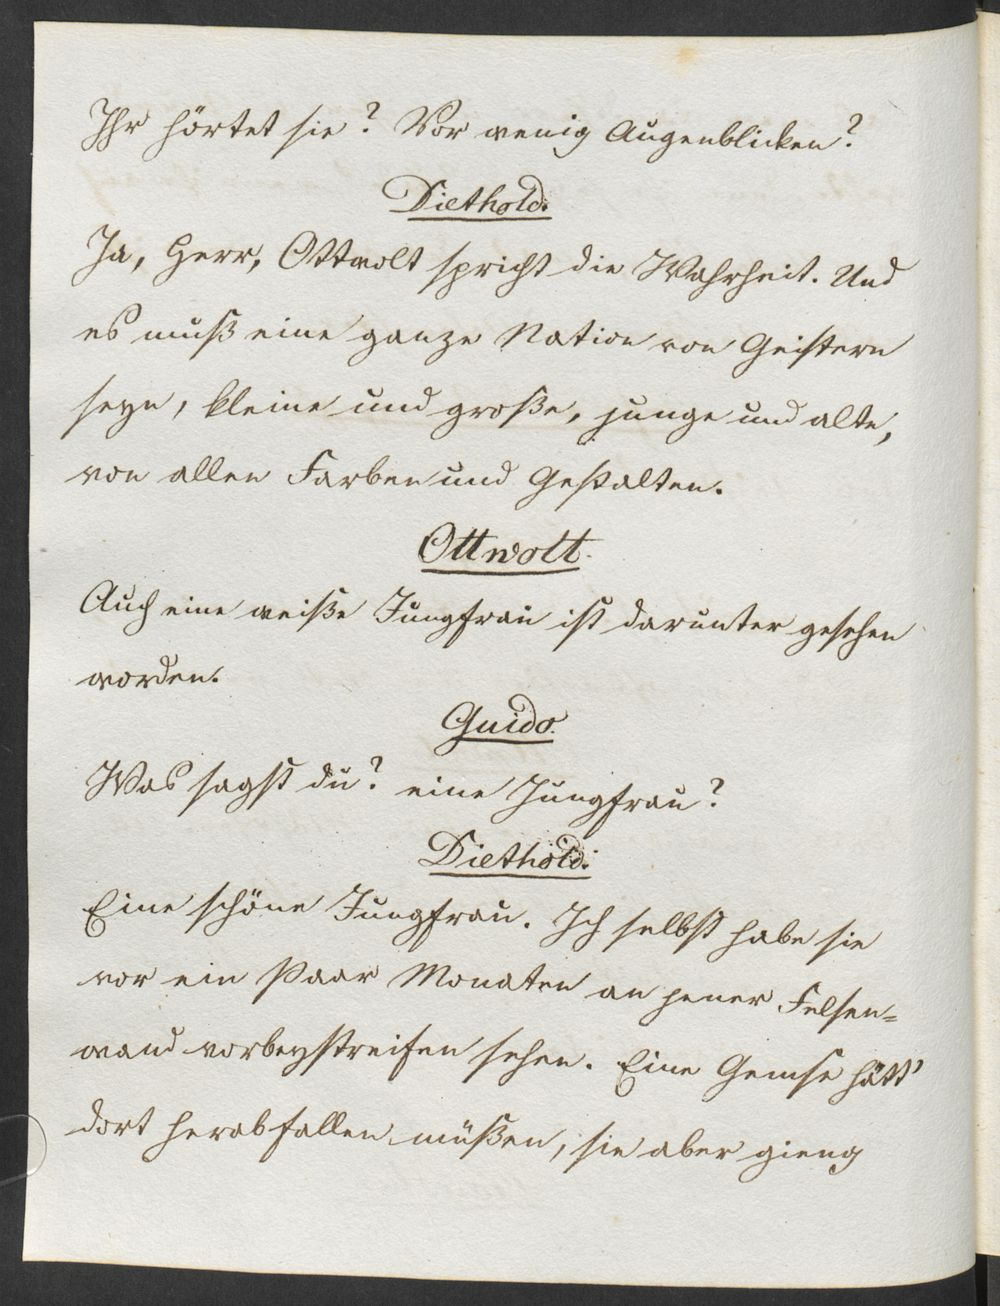 Ihr hörtet sie? Vor wenig Augenblicken?
Diethold.
Ja, Herr, Ottwolt spricht die Wahrheit. Und
es muß eine ganze Nation von Geistern
seyn, kleine und große, junge und alte,
von allen Farben und Gestalten.
Ottwolt.
Auch eine weiße Jungfrau ist darunter gesehen
worden.
Guido.
Was sagst du? eine Jungfrau?
Diethold.
Eine schöne Jungfrau. Ich selbst habe sie
vor ein Paar Monaten an jener Felsen=
wand vorbeystreifen sehen. Eine Gemse hätt'
dort herabfallen müßen, sie aber gieng